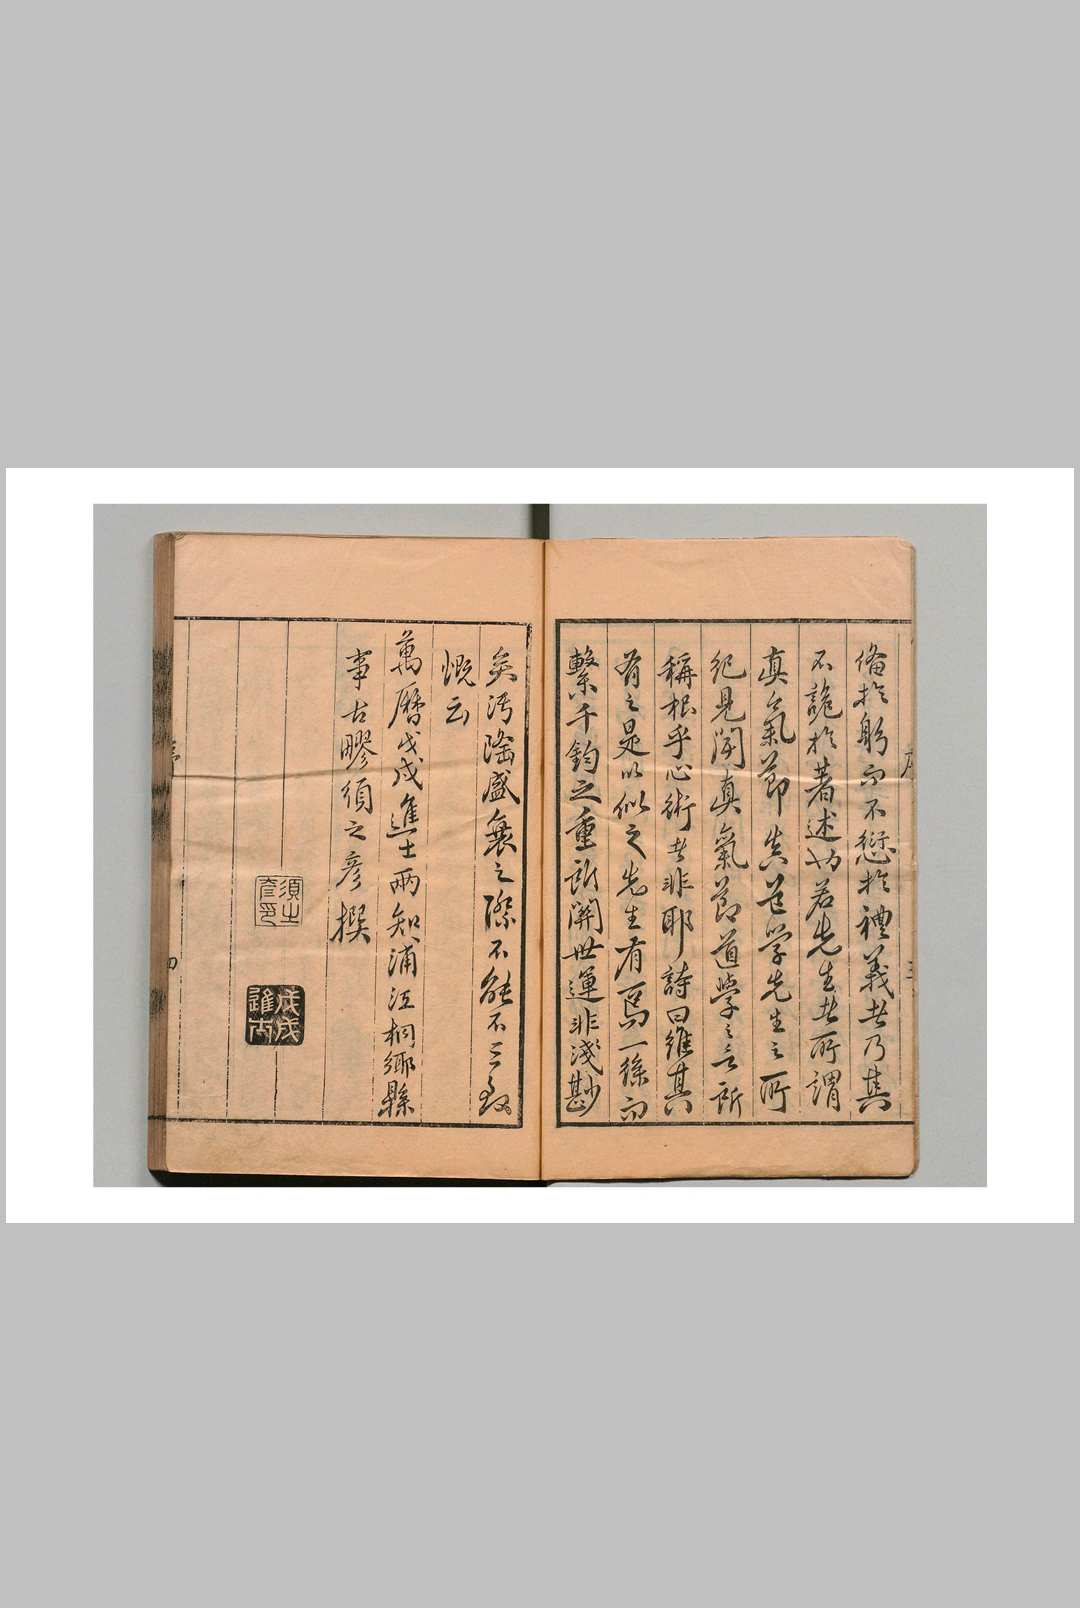 備於躬而不愆於禮義者乃其
不詭於著述功若先生者所謂
真氣節真道學先生之所
紀見聞真氣節道學之言所
稱根乎心術者非耶詩曰維其
有之是以似之先生有焉一綫而
繫千鈞之重所關世運非淺尠
矣污隆盛衰之際不能不三致
慨云
萬曆戊戌進士兩知浦江桐鄉縣
事古疁須之彥撰
須之彥印
戊戌進士